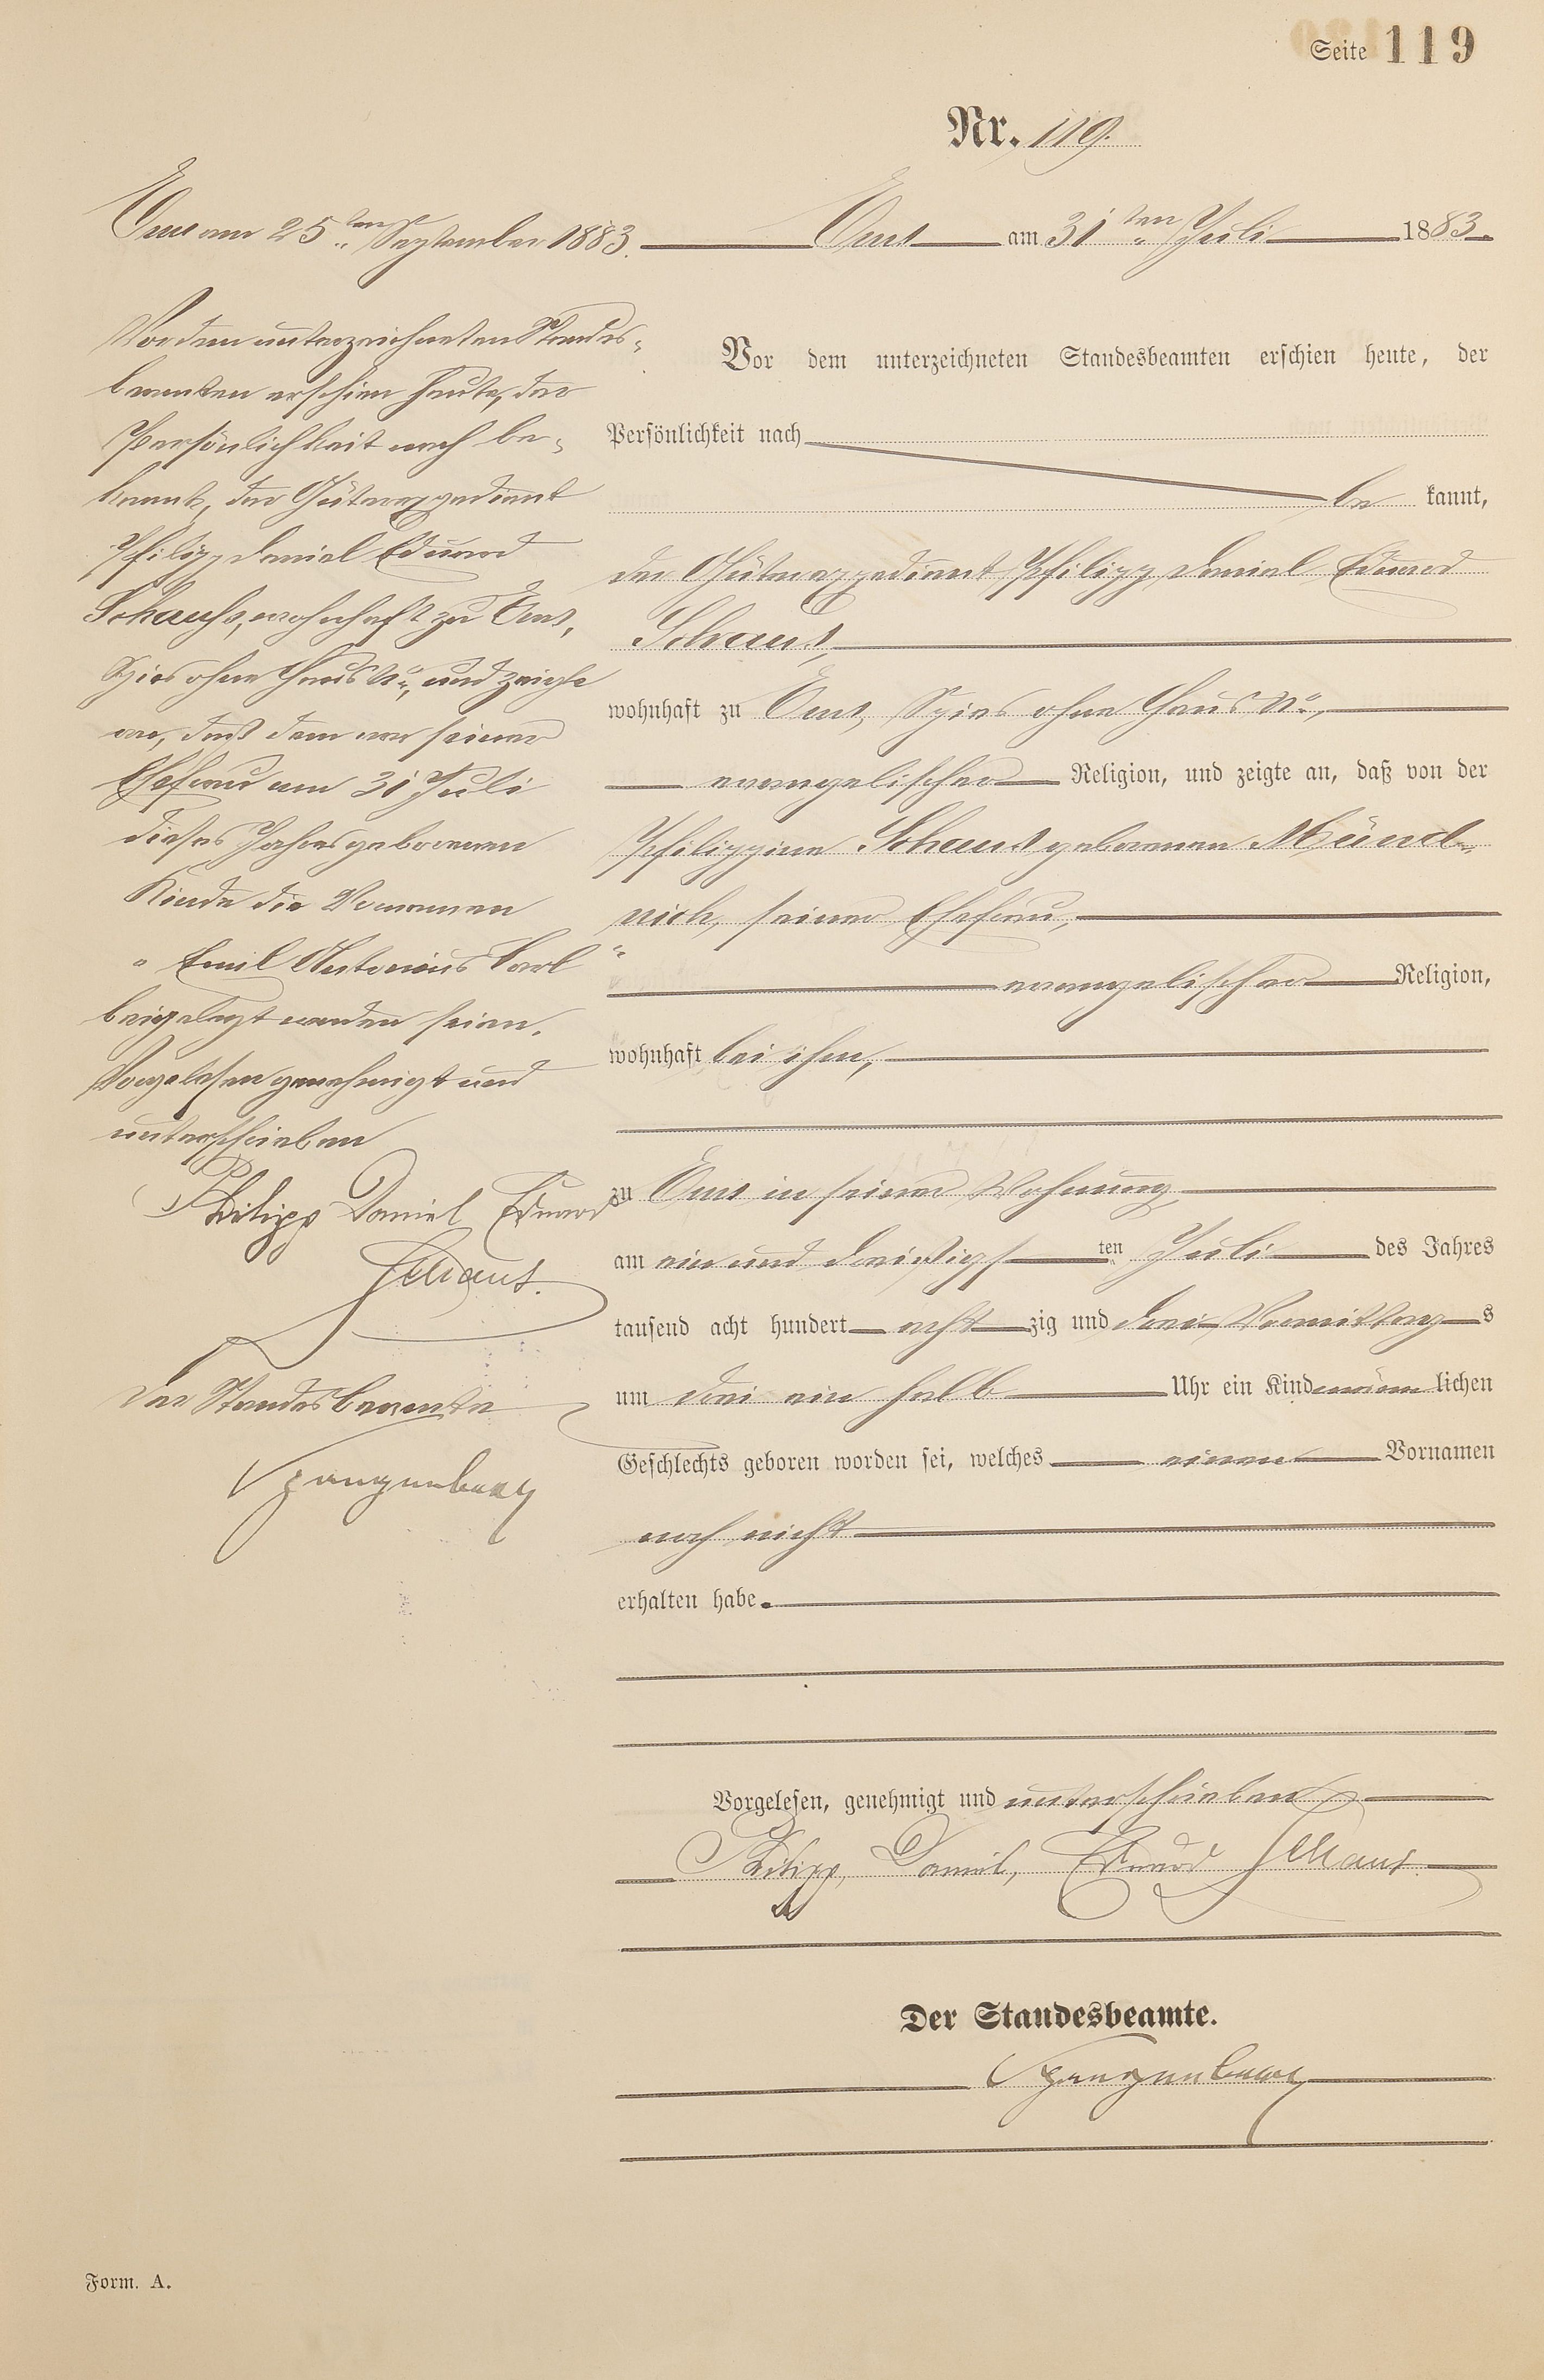 Seite 119
Nr. 119.
Ems am 31ten Juli 1883.
Vor dem unterzeichneten Standesbeamten erschien heute, der
Persönlichkeit nach
be kannt,
der Güterexpedient Philipp Daniel Eduard
Schaus,
wohnhaft zu Ems, Spies ohne Haus No.,
evangelischer Religion, und zeigte an, daß von der
Philippine Schaus geborenen Münd-
nich, seiner Ehefrau,
evangelischer Religion,
wohnhaft bei ihm,
zu Ems in seiner Wohnung
am ein und dreißigsten Juli des Jahres
tausend acht hundert acht zig und drei Vormittags
um drei ein halb Uhr ein Kind männlichen
Geschlechts geboren worden sei, welches einen Vornamen
noch nicht
erhalten habe.
Vorgelesen, genehmigt und unterschrieben
Philipp, Daniel, Eduard Schaus.
Der Standesbeamte.
Spangenberg
Ems am 25ten September 1883.
Vor dem unterzeichneten Standes-
beamten erschien heute, der
Persönlichkeit nach be-
kannt, der Güterexpedient
Philipp Daniel Eduard
Schauss, wohnhaft zu Ems,
Spies ohne Haus No., und zeigte
an, daß dem von seiner
Ehefrau am 31 Juli
dieses Jahres geborenen
Kinde die Vornamen
"Emil Antonius Carl"
beigelegt worden seien.
Vorgelesen genehmigt und
unterschrieben
Philipp Daniel Eduard
Schaus.
Der Standesbeamte
Spangenberg
Form. A.